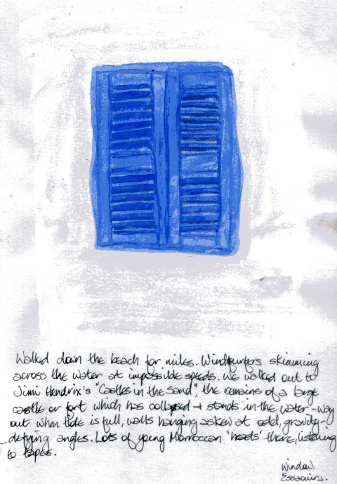 Walked down the beach for miles. Windsurfers skimming
across the water at impossible speeds. We walked out to
Jimi Hendrix's "Castles in the Sand", the remains of a large
castle or fort which has collapsed + stands in the water - way
out when tide is full, walls hanging askew at odd, gravity-
defying angles. Lots of young Moroccan 'heads' there, listening
to tapes.
Window,
Essaouira.